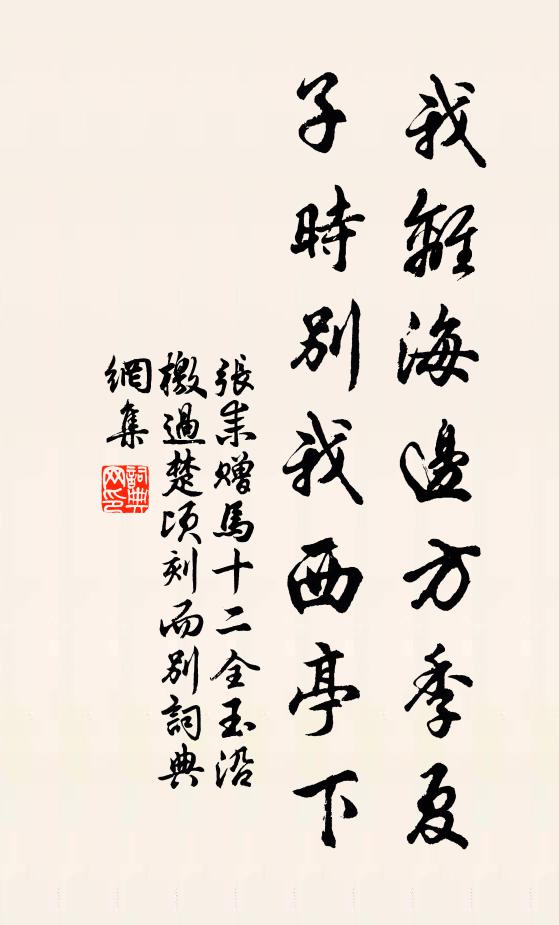 我離海邊方季夏
子時別我西亭下
張耒贈馬十二全玉沿
檄過楚頃刻而別詞典
網集
詞典
网印